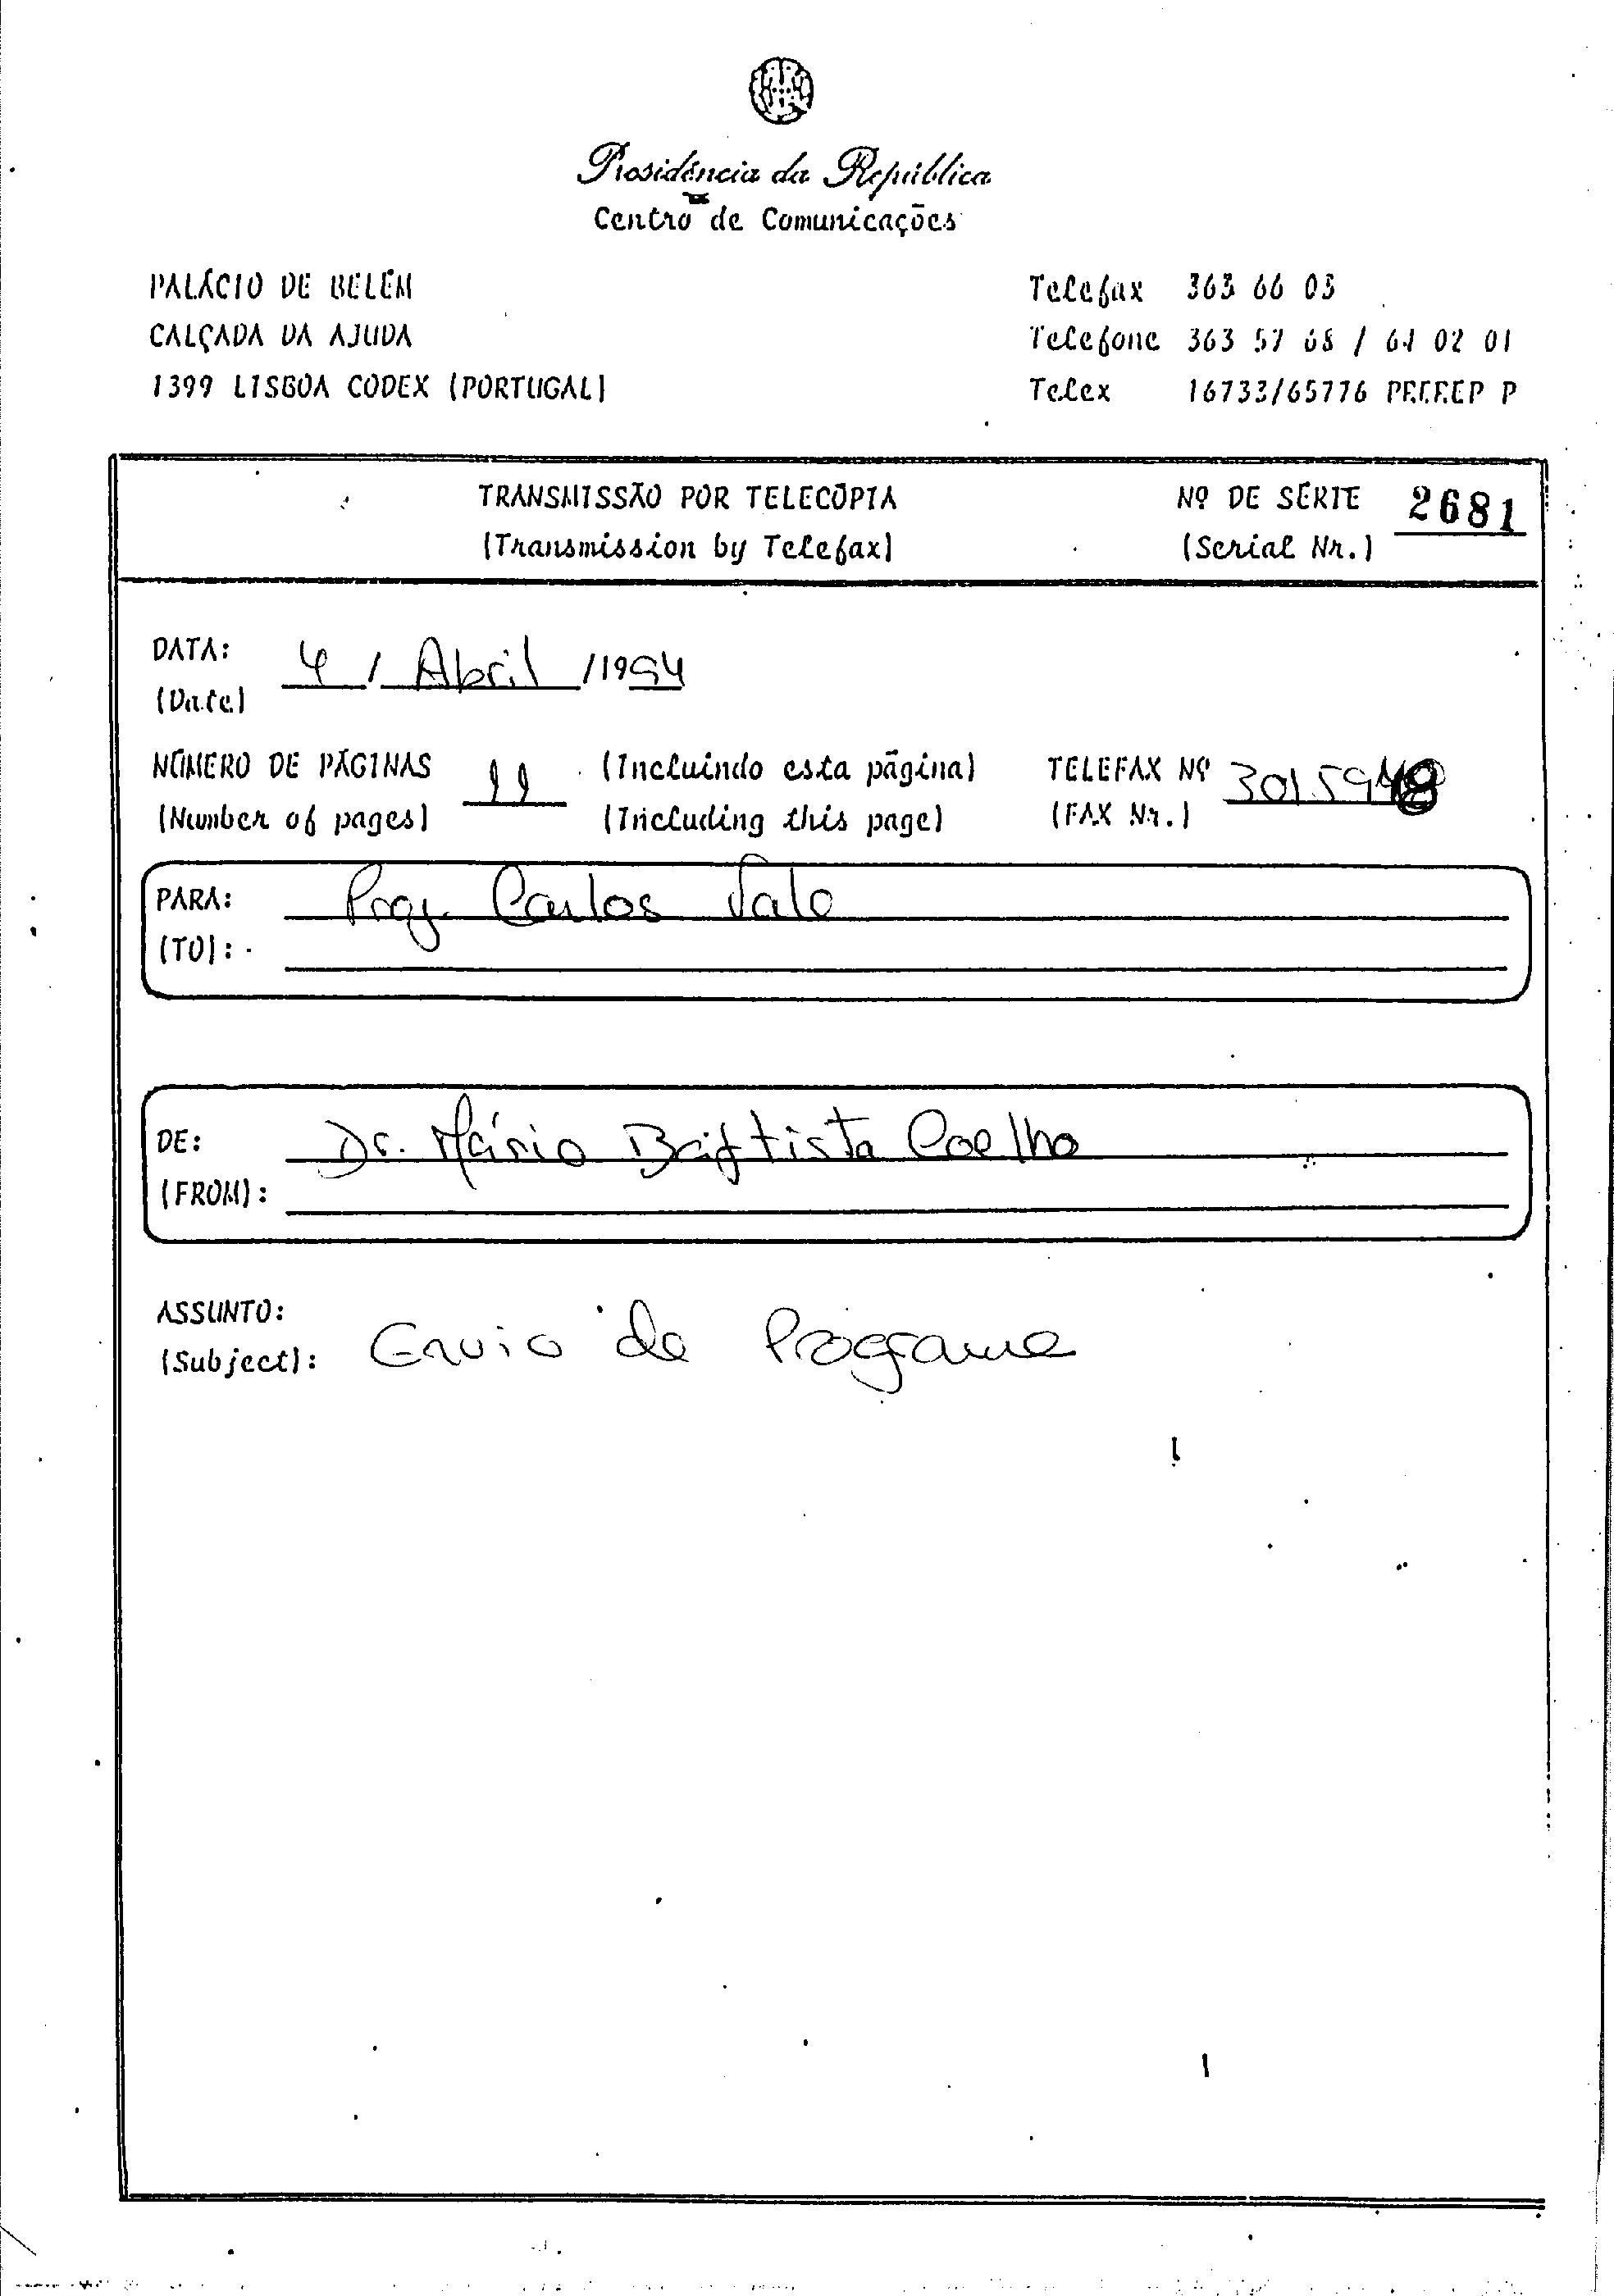 Presidência da República
Centro de Comunicações
PALÁCIO DE BELÉM
CALÇADA DA AJUDA
1399 LISBOA CODEX (PORTUGAL)
Telefax 363 66 03
Telefone 363 57 68 /
Telex 16733/65776 P
TRANSMISSÃO POR TELECÓPIA
(Transmission by Telefax)
Nº DE SÉRIE 2681
(Serial Nr.)
DATA: 4 / Abril / 1994
(Date)
NÚMERO DE PÁGINAS 11 (Incluindo esta página) TELEFAX Nº
(Number of pages) (Including this page) (FAX Nr.)
PARA: Prof. Carlos Vale
(TO):
DE: Dr. Mário Baptista Coelho
(FROM):
ASSUNTO:
(Subject): Envio de Programa